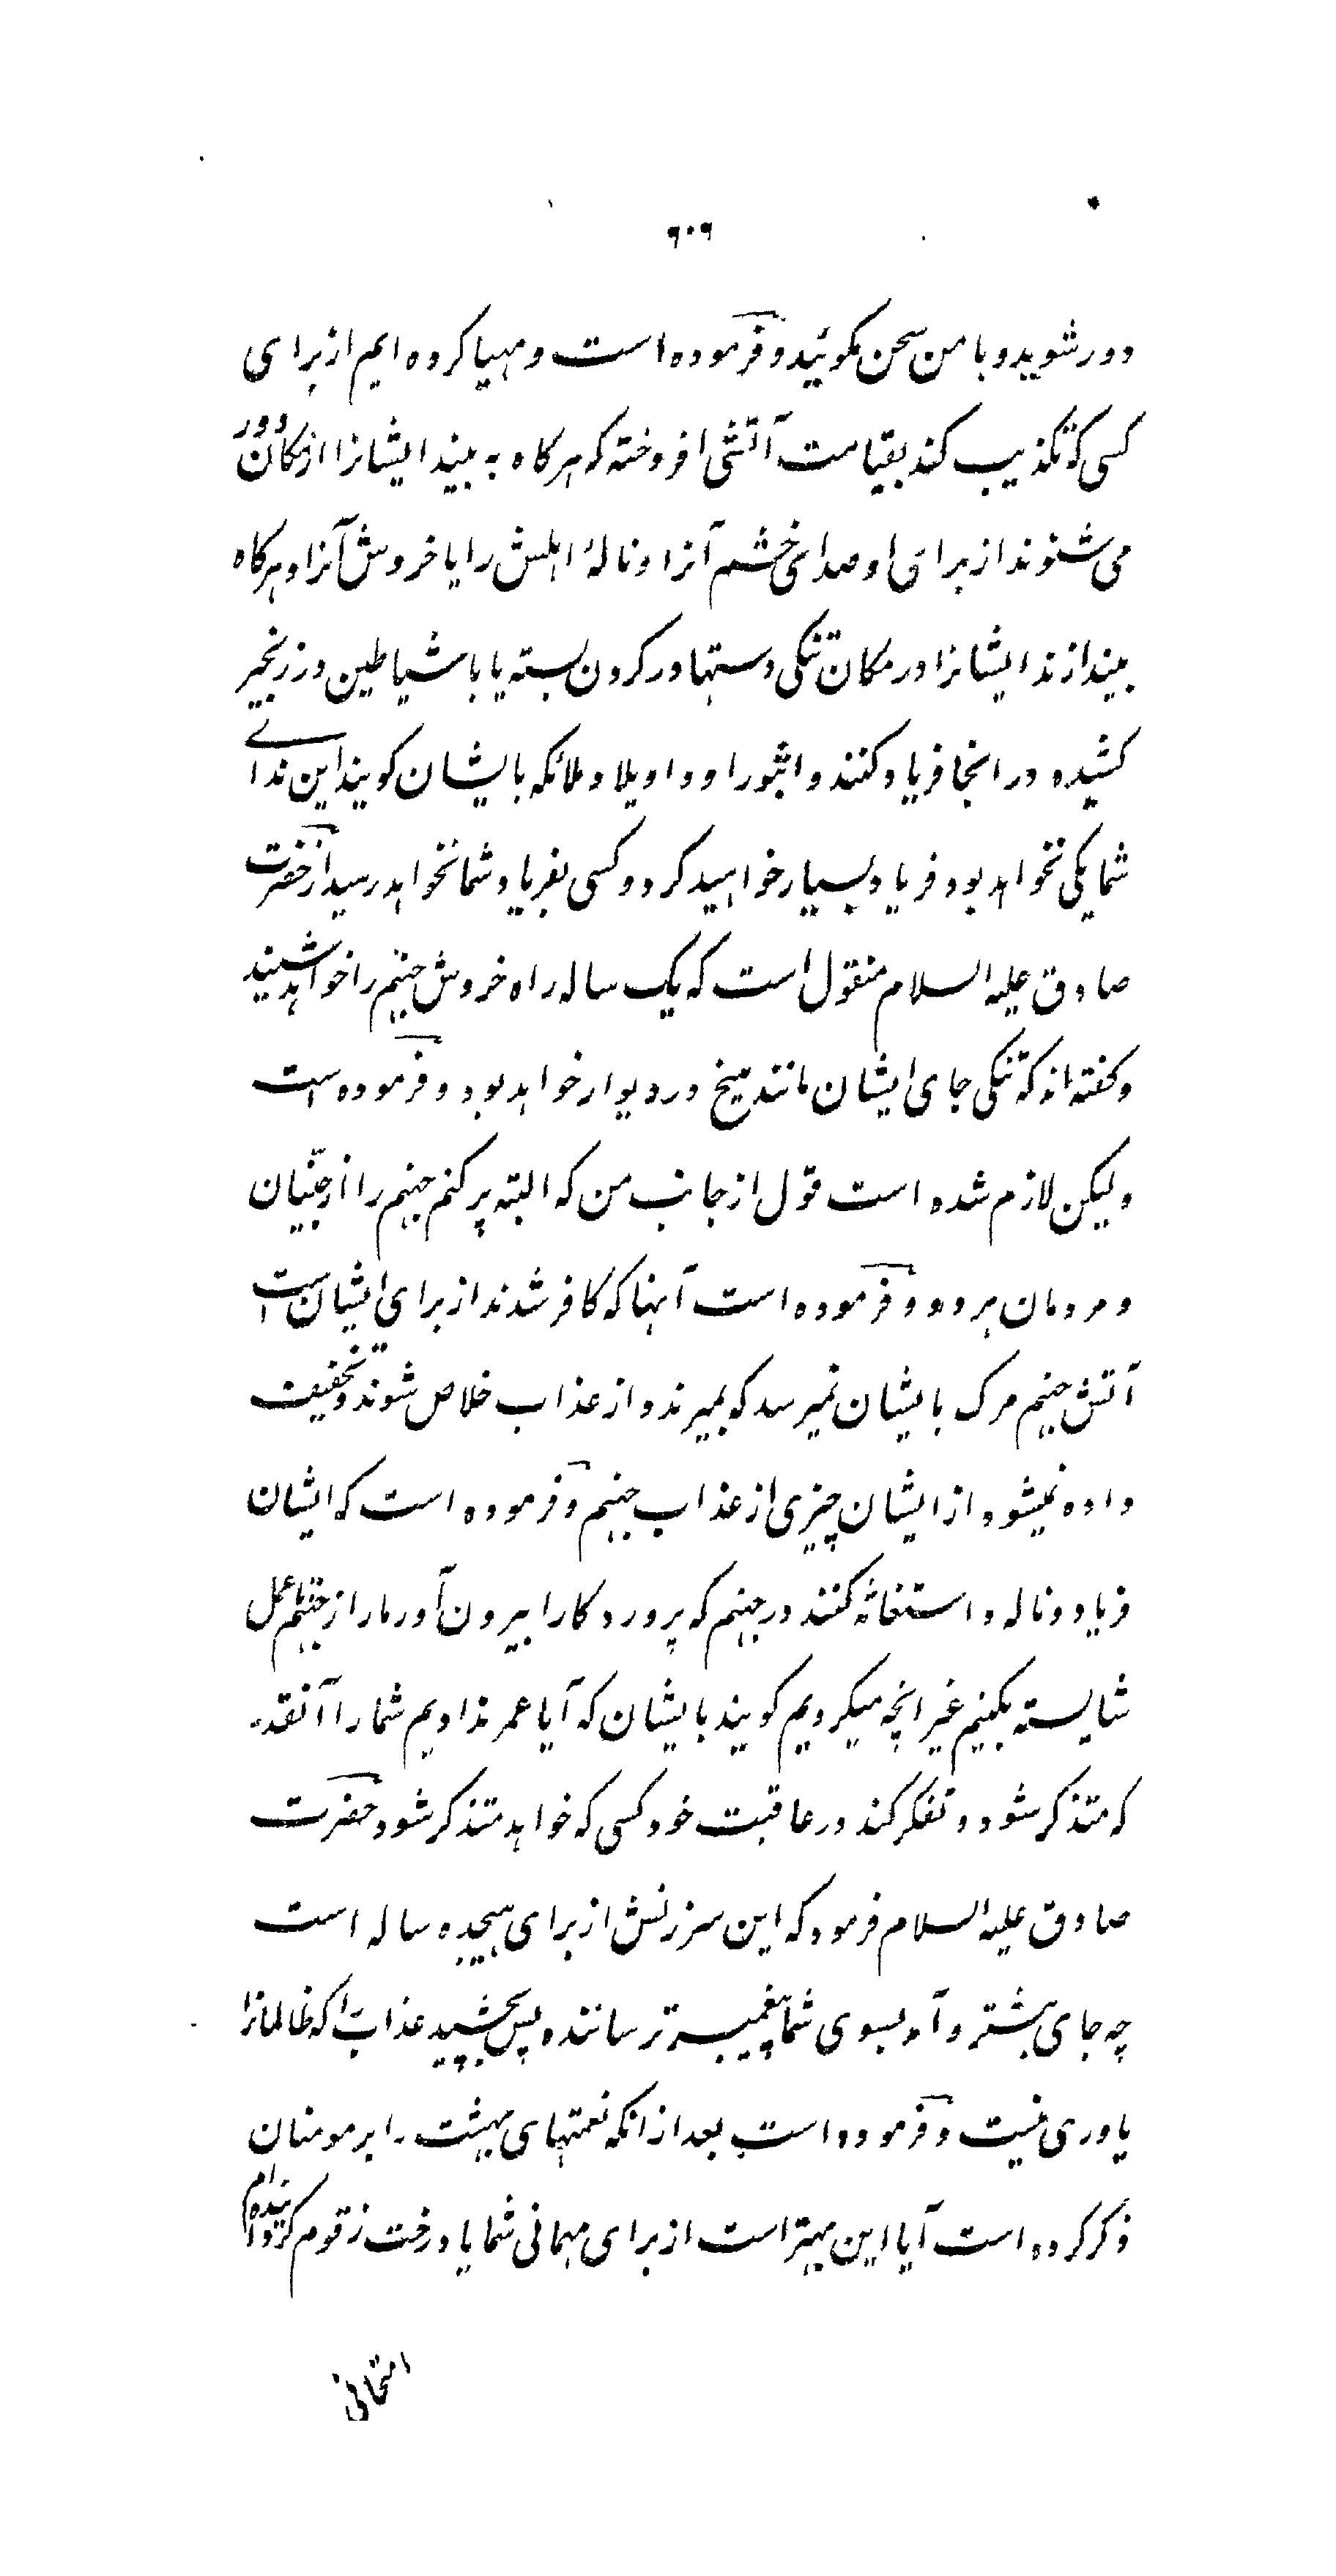 ۶۰۶
دور شوید و با من سخن مگوئید و فرموده است و مهیا کرده ایم از برای
کسی که تکذیب کند بقیامت آتشی افروخته که هرگاه به بیند ایشانرا از مکان دور
می شنوند از برای او صدای خشم آنرا و ناله اهلش را یا خروش آنرا و هرگاه
بیندازند ایشانرا در مکان تنگی دستها در گردن بسته یا با شیاطین در زنجیر
کشیده در انجا فریاد کنند واثبورا و واویلا و ملائکه بایشان گویند این ندای
شما یکی نخواهد بود فریاد بسیار خواهید کرد و کسی بفریاد شما نخواهد رسید از حضرت
صادق علیه السلام منقول است که یک ساله راه خروش جهنم را خواهند شنید
و گفته اند که تنگی جای ایشان مانند میخ در دیوار خواهد بود و فرموده است
ولیکن لازم شده است قول از جانب من که البته پر کنم جهنم را از جنّیان
و مردمان هر دو و فرموده است آنها که کافر شدند از برای ایشان است
آتش جهنم مرک بایشان نمیرسد که بمیرند و از عذاب خلاص شوند و تخفیف
داده نمیشود از ایشان چیزی از عذاب جهنم و فرموده است که ایشان
فریاد و ناله و استغاثه کنند در جهنم که پروردکارا بیرون آور ما را از جهنم تا عمل
شایسته بکنیم غیر انچه میکردیم کویند بایشان که آیا عمر ندادیم شما را آنقدر
که متذکر شود و تفکر کند در عاقبت خود کسی که خواهد متذکر شود حضرت
صادق علیه السلام فرمود که این سرزنش از برای هیجده ساله است
چه جای بیشتر و آمد بسوی شما پیغمبر ترساننده پس بچشید عذاب را که ظالمانرا
یاوری نیست و فرموده است بعد از انکه نعمتهای بهشت را بر مومنان
ذکر کرده است آیا این بهتر است از برای مهمانی شما یا درخت زقوم گردانیده ام انرا
امتحانی